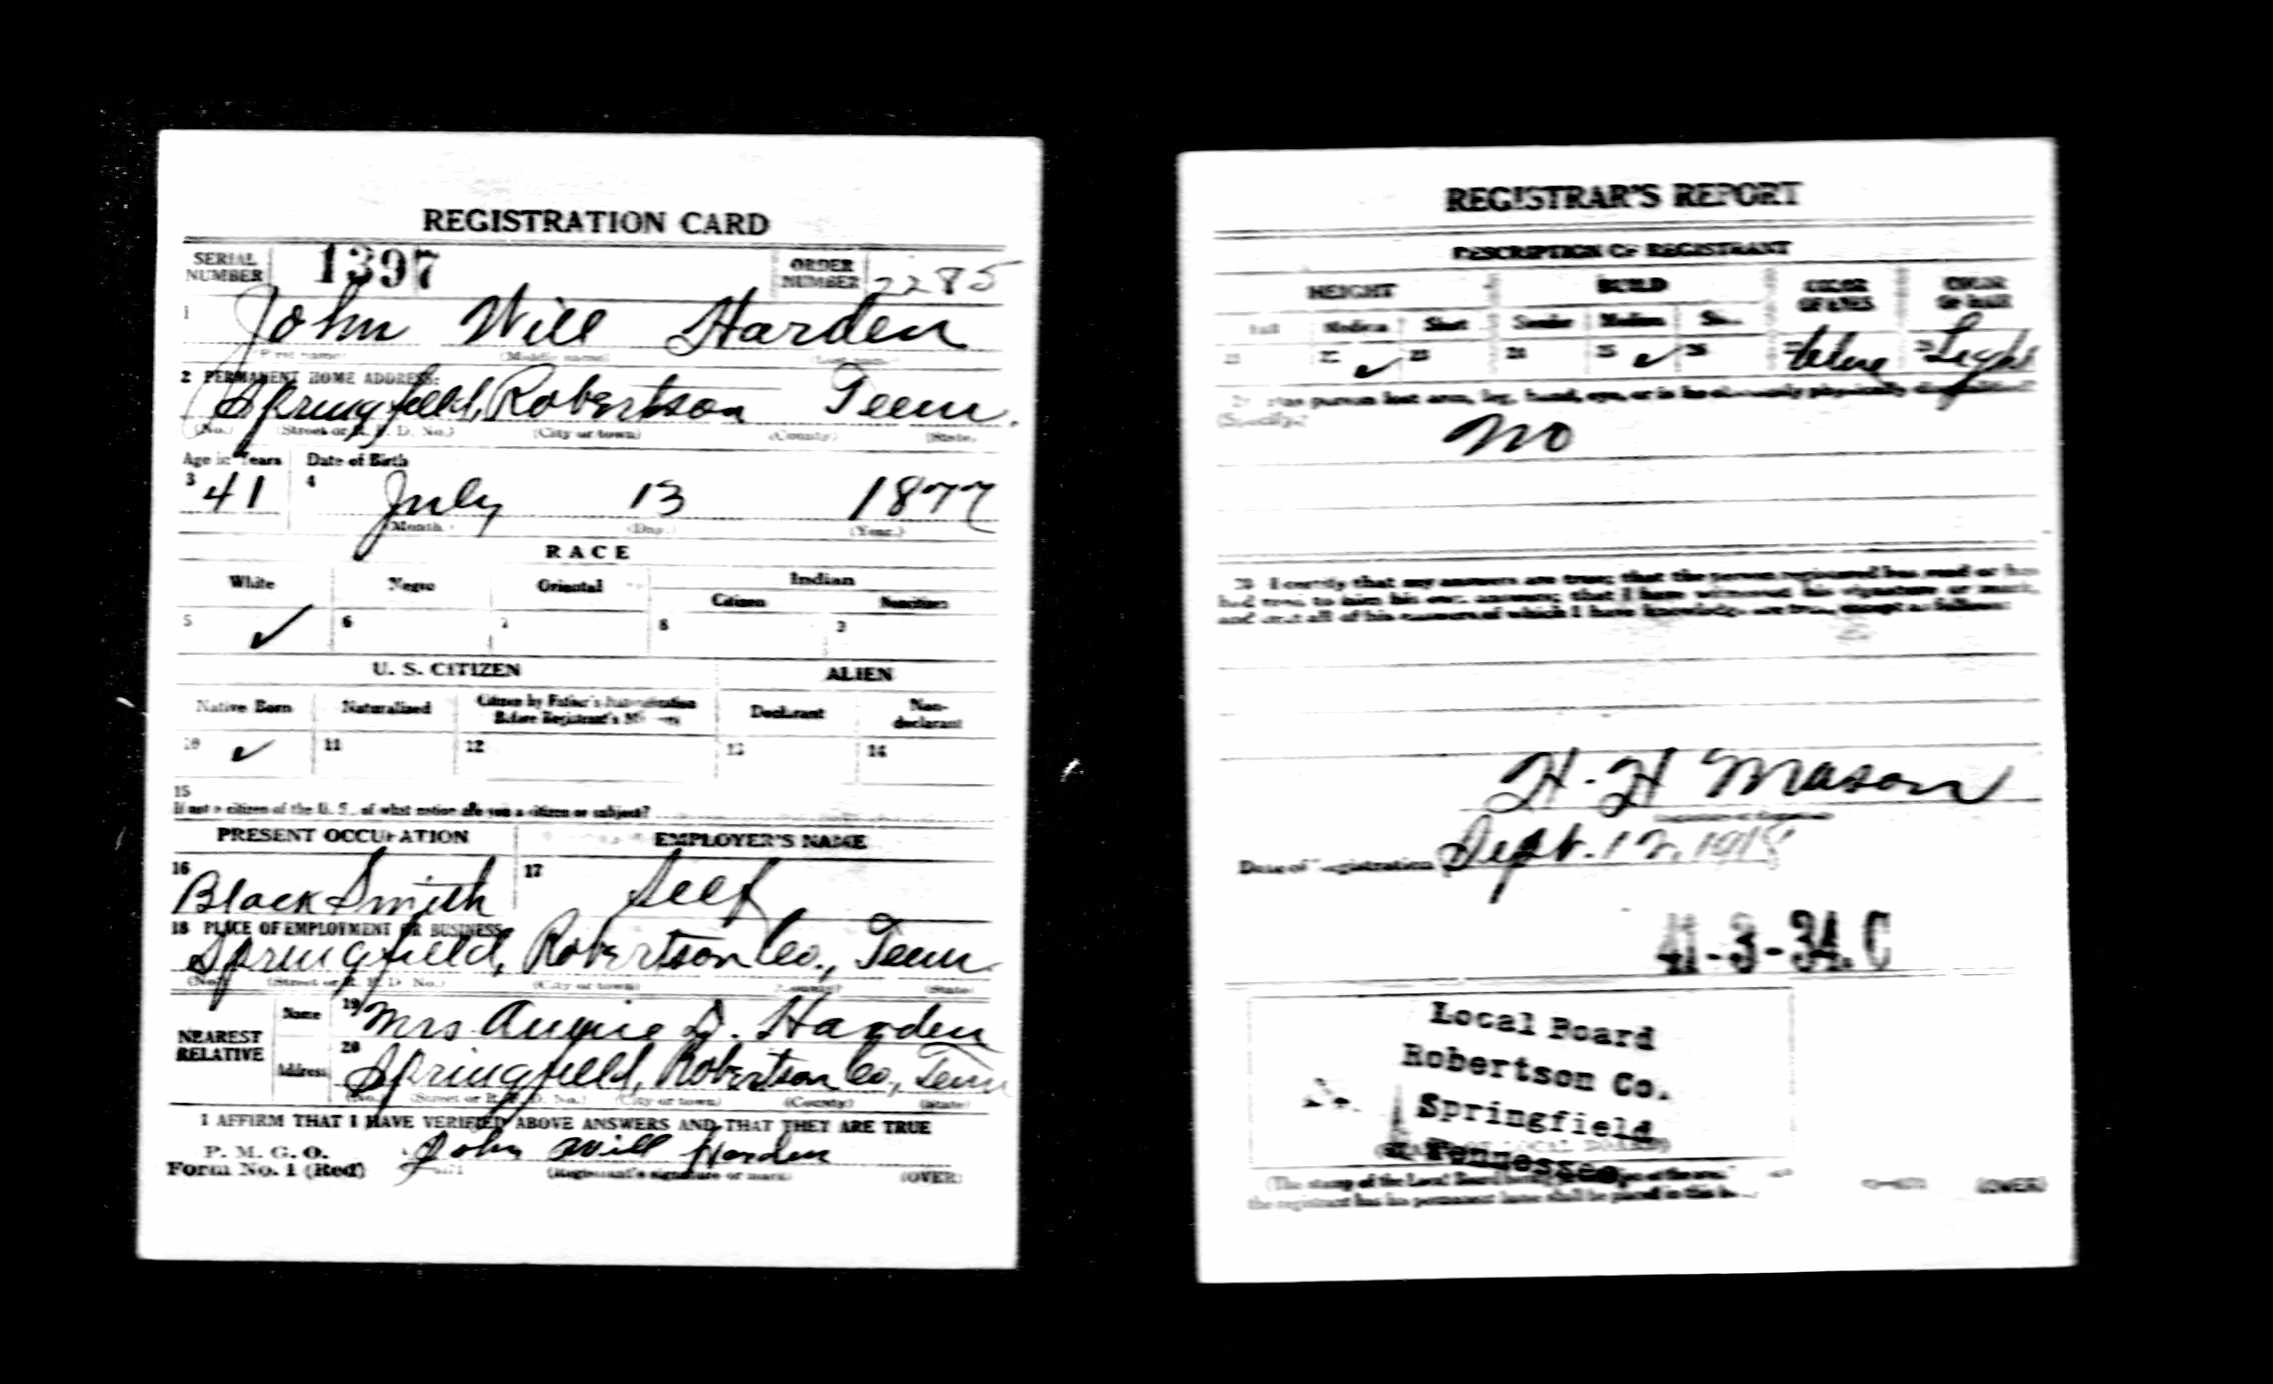 REGISTRATION CARD
SERIAL NUMBER 1397 ORDER NUMBER 2285
1 John Will Harden
(First name) (Middle name) (Last name)
2 PERMANENT HOME ADDRESS:
Springfield, Robertson Tenn.
(No.) (Street or R. F. D. No.) (City or town) (County) (State)
Age in Years Date of Birth
3 41 4 July 13 1877
(Month.) (Day.) (Year.)
RACE
White Negro Oriental Indian
Citizen Noncitizen
5 ✓ 6 7 8 9
U. S. CITIZEN ALIEN
Native Born Naturalized Citizen by Father's Naturalization Before Registrant's Majority Declarant Non-declarant
10 ✓ 11 12 13 14
15
If not a citizen of the U. S., of what nation are you a citizen or subject?
PRESENT OCCUPATION EMPLOYER'S NAME
16 Black Smith 17 Self
18 PLACE OF EMPLOYMENT OR BUSINESS
Springfield, Robertson Co., Tenn.
(No.) (Street or R. F. D. No.) (City or town) (County) (State)
NEAREST RELATIVE Name 19 Mrs Annie D. Harden
Address 20 Springfield, Robertson Co., Tenn
(No.) (Street or R. F. D. No.) (City or town) (County) (State)
I AFFIRM THAT I HAVE VERIFIED ABOVE ANSWERS AND THAT THEY ARE TRUE
P. M. G. O.
Form No. 1 (Red) John Will Harden
(Registrant's signature or mark) (OVER)
REGISTRAR'S REPORT
DESCRIPTION OF REGISTRANT
HEIGHT BUILD COLOR OF EYES COLOR OF HAIR
Tall Medium Short Slender Medium Stout
21 22 ✓ 23 24 25 ✓ 26 27 blue 28 Light
29 Has person lost arm, leg, hand, eye, or is he obviously physically disqualified?
(Specify.) No
30 I certify that my answers are true; that the person registered has read or has
had read to him his own answers; that I have witnessed his signature or mark,
and that all of his answers of which I have knowledge are true, except as follows:
H. H Mason
Date of Registration Sept. 12, 1918
41-3-34. C
Local Board
Robertson Co.
Springfield
Tennessee
(The stamp of the Local Board
the registrant has his permanent home shall be placed in this
(OVER)